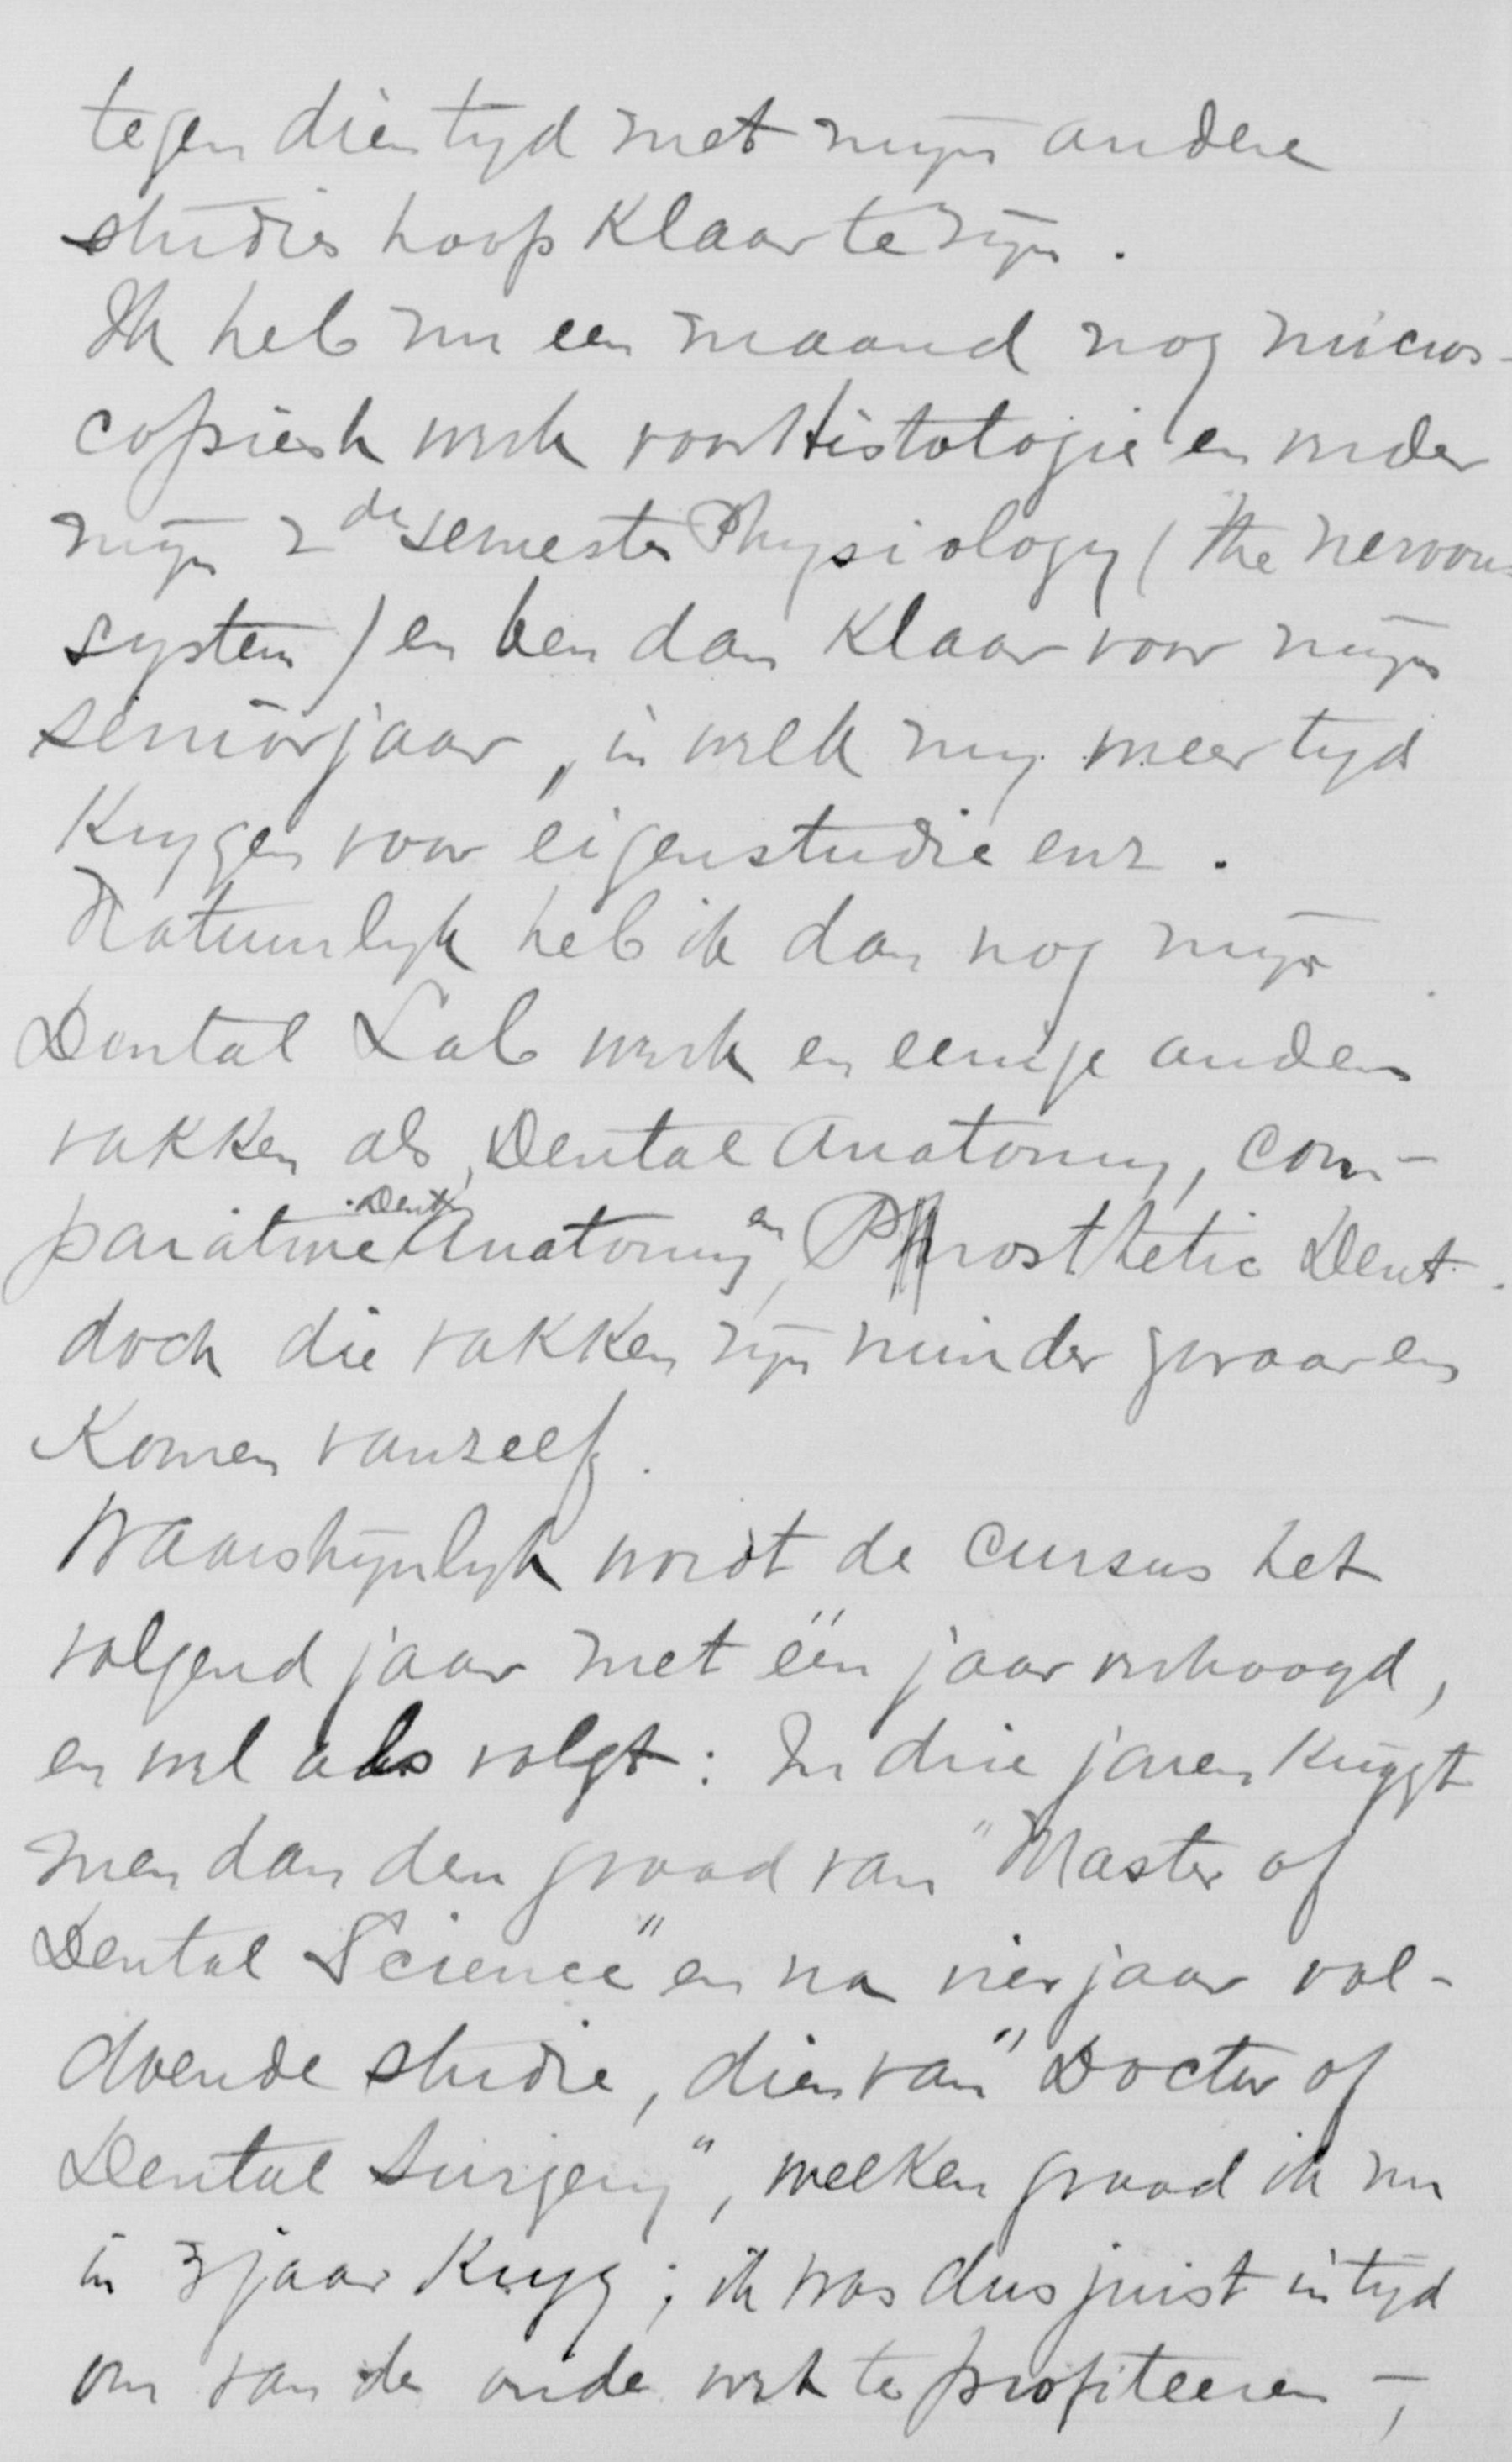 tegen dien tyd met mijn andere
studies hoop klaar te zijn.
Ik heb nu een maand nog micros-
copiesk werk voor Histologie en verder
mijn 2de semester Physiology (the nervous
system) en ben dan klaar voor mijn
seniorjaar, in welk wij meer tyd
krygen voor eigenstudie enz.
Natuurlyk heb ik dan nog mijn
Dental Lab werk en eenige andere
vakken als, Dental Anatomy, com-
parative Dent. Anatomy, en Prosthetic Dent.
doch die vakken zijn minder zwaar en
komen vanzelf.
Waarshijnlyk wordt de cursus het
volgend jaar met één jaar verhoogd,
en wel als volgt: In drie jaren krijgt
men dan den graad van "Master of
Dental Science" en na vier jaar vol-
doende studie, dien van "Doctor of
Dental Surgery", welken graad ik nu
in 3 jaar kryg; ik was dus juist in tijd
om van de oude wet te profiteeren -,